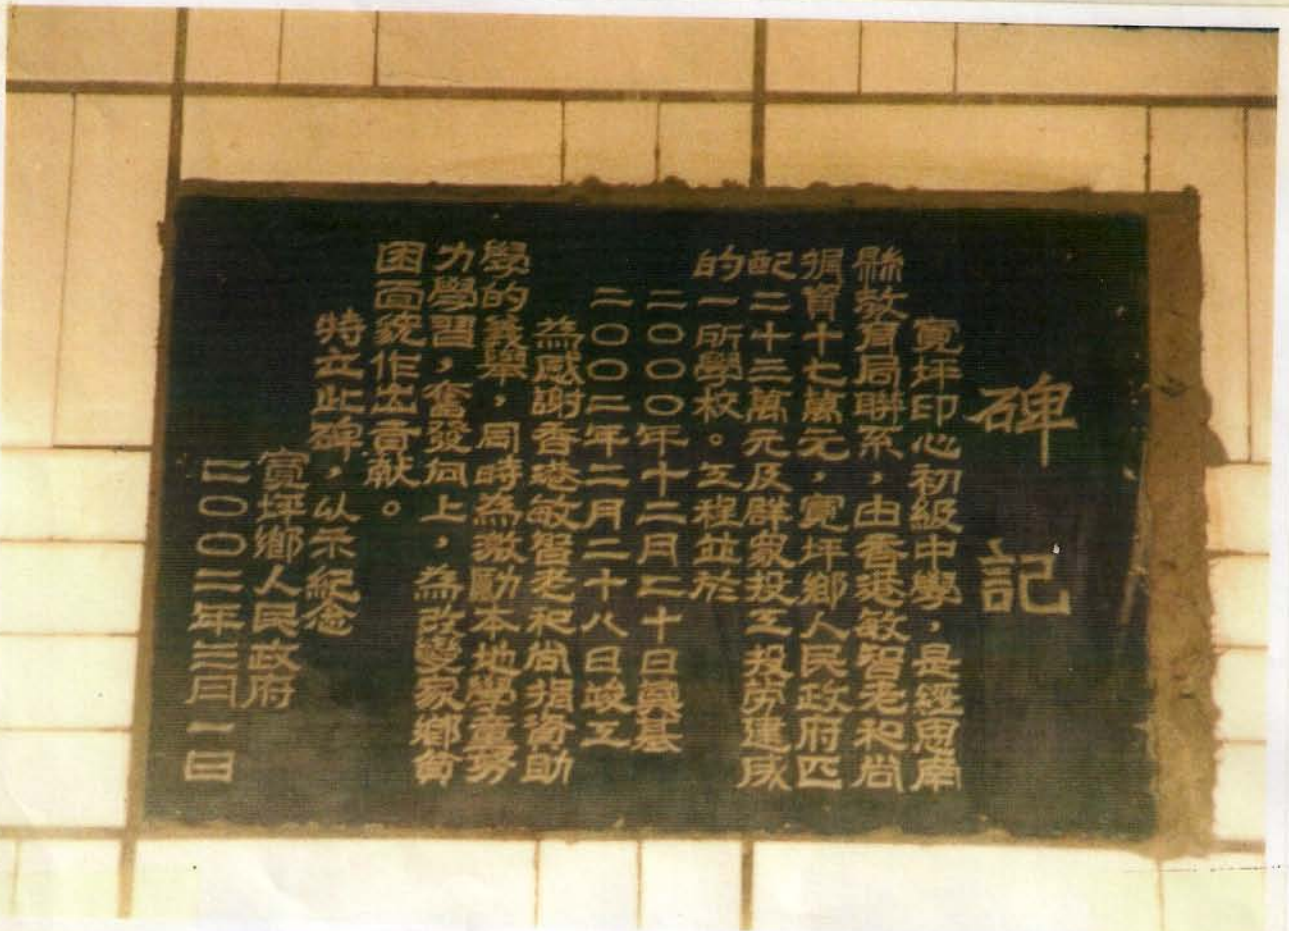 碑記
寬坪印心初級中學，是經思南
縣教育局聯系，由香港敏智老和尚
捐資十七萬元，寬坪鄉人民政府匹
配二十三萬元及群衆投工投勞建成
的一所學校。工程並於
二〇〇〇年十二月二十日奠基
二〇〇二年二月二十八日竣工
為感謝香港敏智老和尚捐資助
學的義舉，同時為激勵本地學童努
力學習，奮發向上，為改變家鄉貧
困面貌作出貢献。
特立此碑，以示紀念
寬坪鄉人民政府
二〇〇二年三月一日